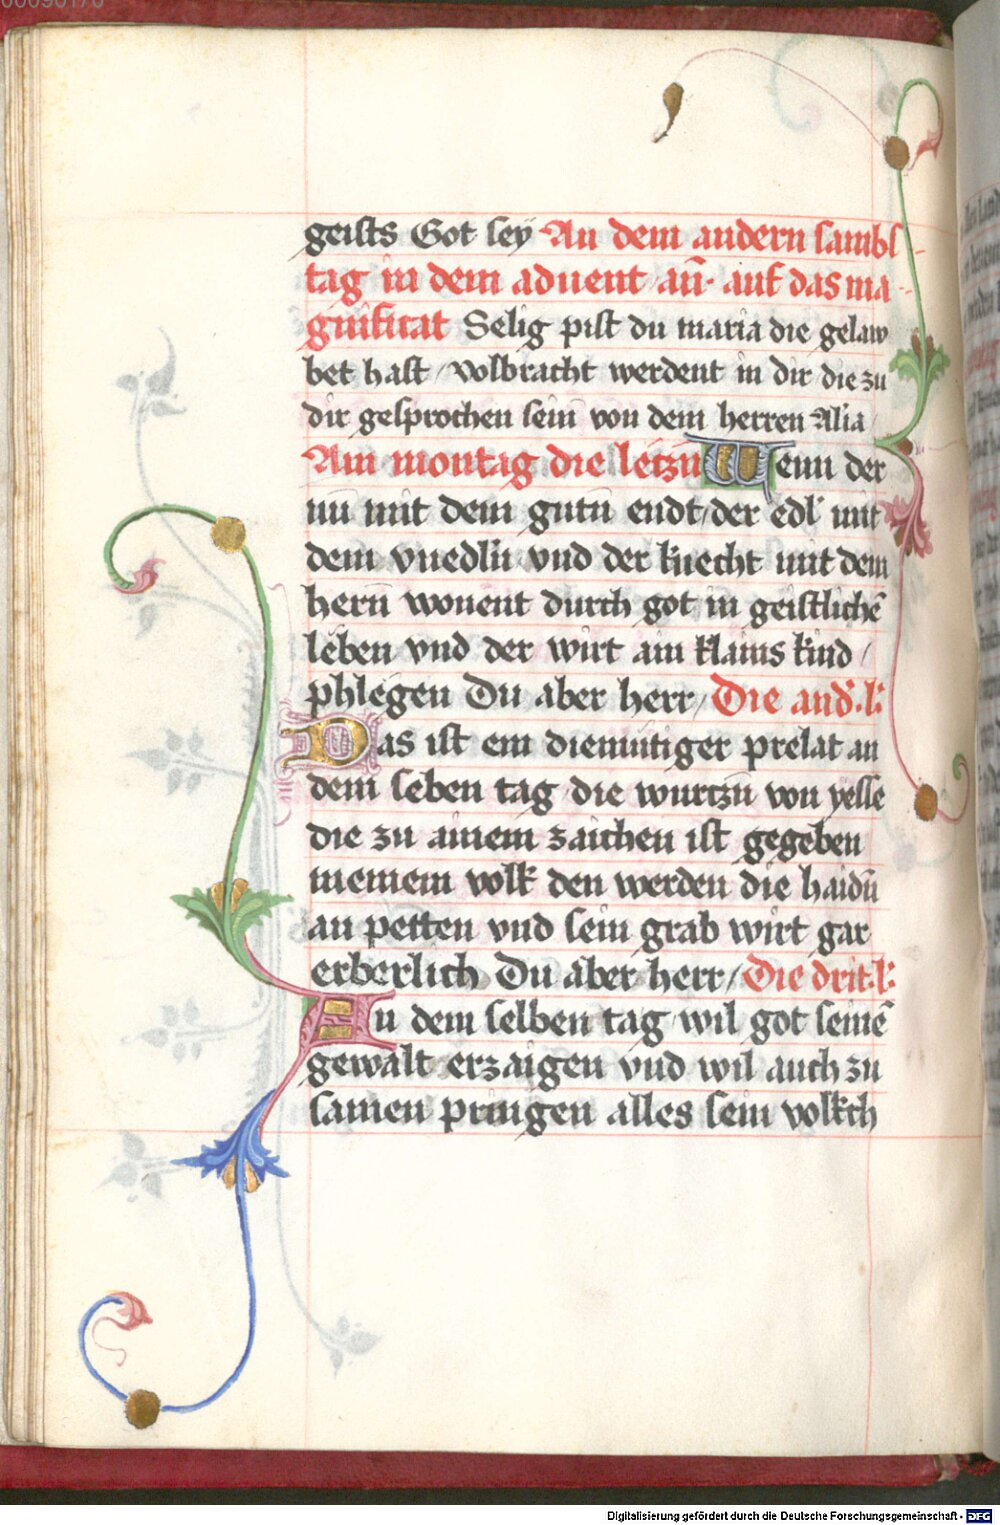 geists Got seÿ An dem andern sambs
tag in dem aduent añ· auf das ma
gnificat Selig pist du maria die gelaw
bet hast / volbracht werdent in dir die zu
dir gesprochen sein von dem herren Alia /
Am montag die letzñ Wenn der
nū mit dem gutñ endt / der edl mit
dem vnedlñ vnd der knecht mit dem
herñ wonent durch got in geistlichē
leben vnd der wirt ain klains kind /
phlegen Du aber herr / Die and. l:
Das ist ein diemütiger prelat an
dem seben tag die wurtzñ von yesse
die zu ainem zaichen ist gegeben
meinem volk den werden die haidñ
an petten vnd sein grab wirt gar
erberlich Du aber herr / Die drit. l:
An dem selben tag wil got seinē
gewalt erzaigen vnd wil auch zu
samen pringen alles sein volkch
Digitalisierung gefördert durch die Deutsche Forschungsgemeinschaft - DFG